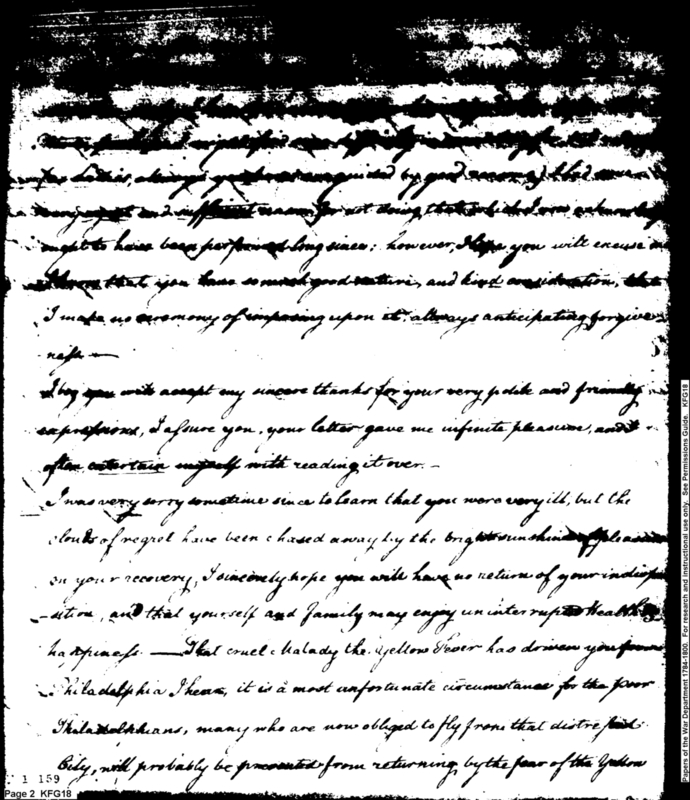 for Ladies, always guided by good reasons, that
and sufficient reason for not doing that which I
ought to have been performed long since; however, I hope you will excuse
that you have so much good nature, and kind consideration, that
I make no ceremony of imposing upon it, always anticipating forgive-
ness —
I beg you will accept my sincere thanks for your very polite and friendly
expressions, I assure you, your letter gave me infinite pleasure, and I
often entertain myself with reading it over. —
I was very sorry sometime since to learn that you were very ill, but the
clouds of regret have been chased away by the bright sunshine of pleasure
on your recovery, I sincerely hope you will have no return of your indispo
-sition, and that yourself and Family may enjoy uninterrupted Health &
happiness. — That cruel Malady the Yellow Fever has driven you from
Philadelphia I hear, it is a most unfortunate circumstance for the poor
Philadelphians, many who are now obliged to fly from that distressed
City, will probably be prevented from returning by the fear of the Yellow
1 159
Page 2 KFG18
Papers of the War Department 1784-1800. For research and instructional use only. See Permissions Guide. KFG18